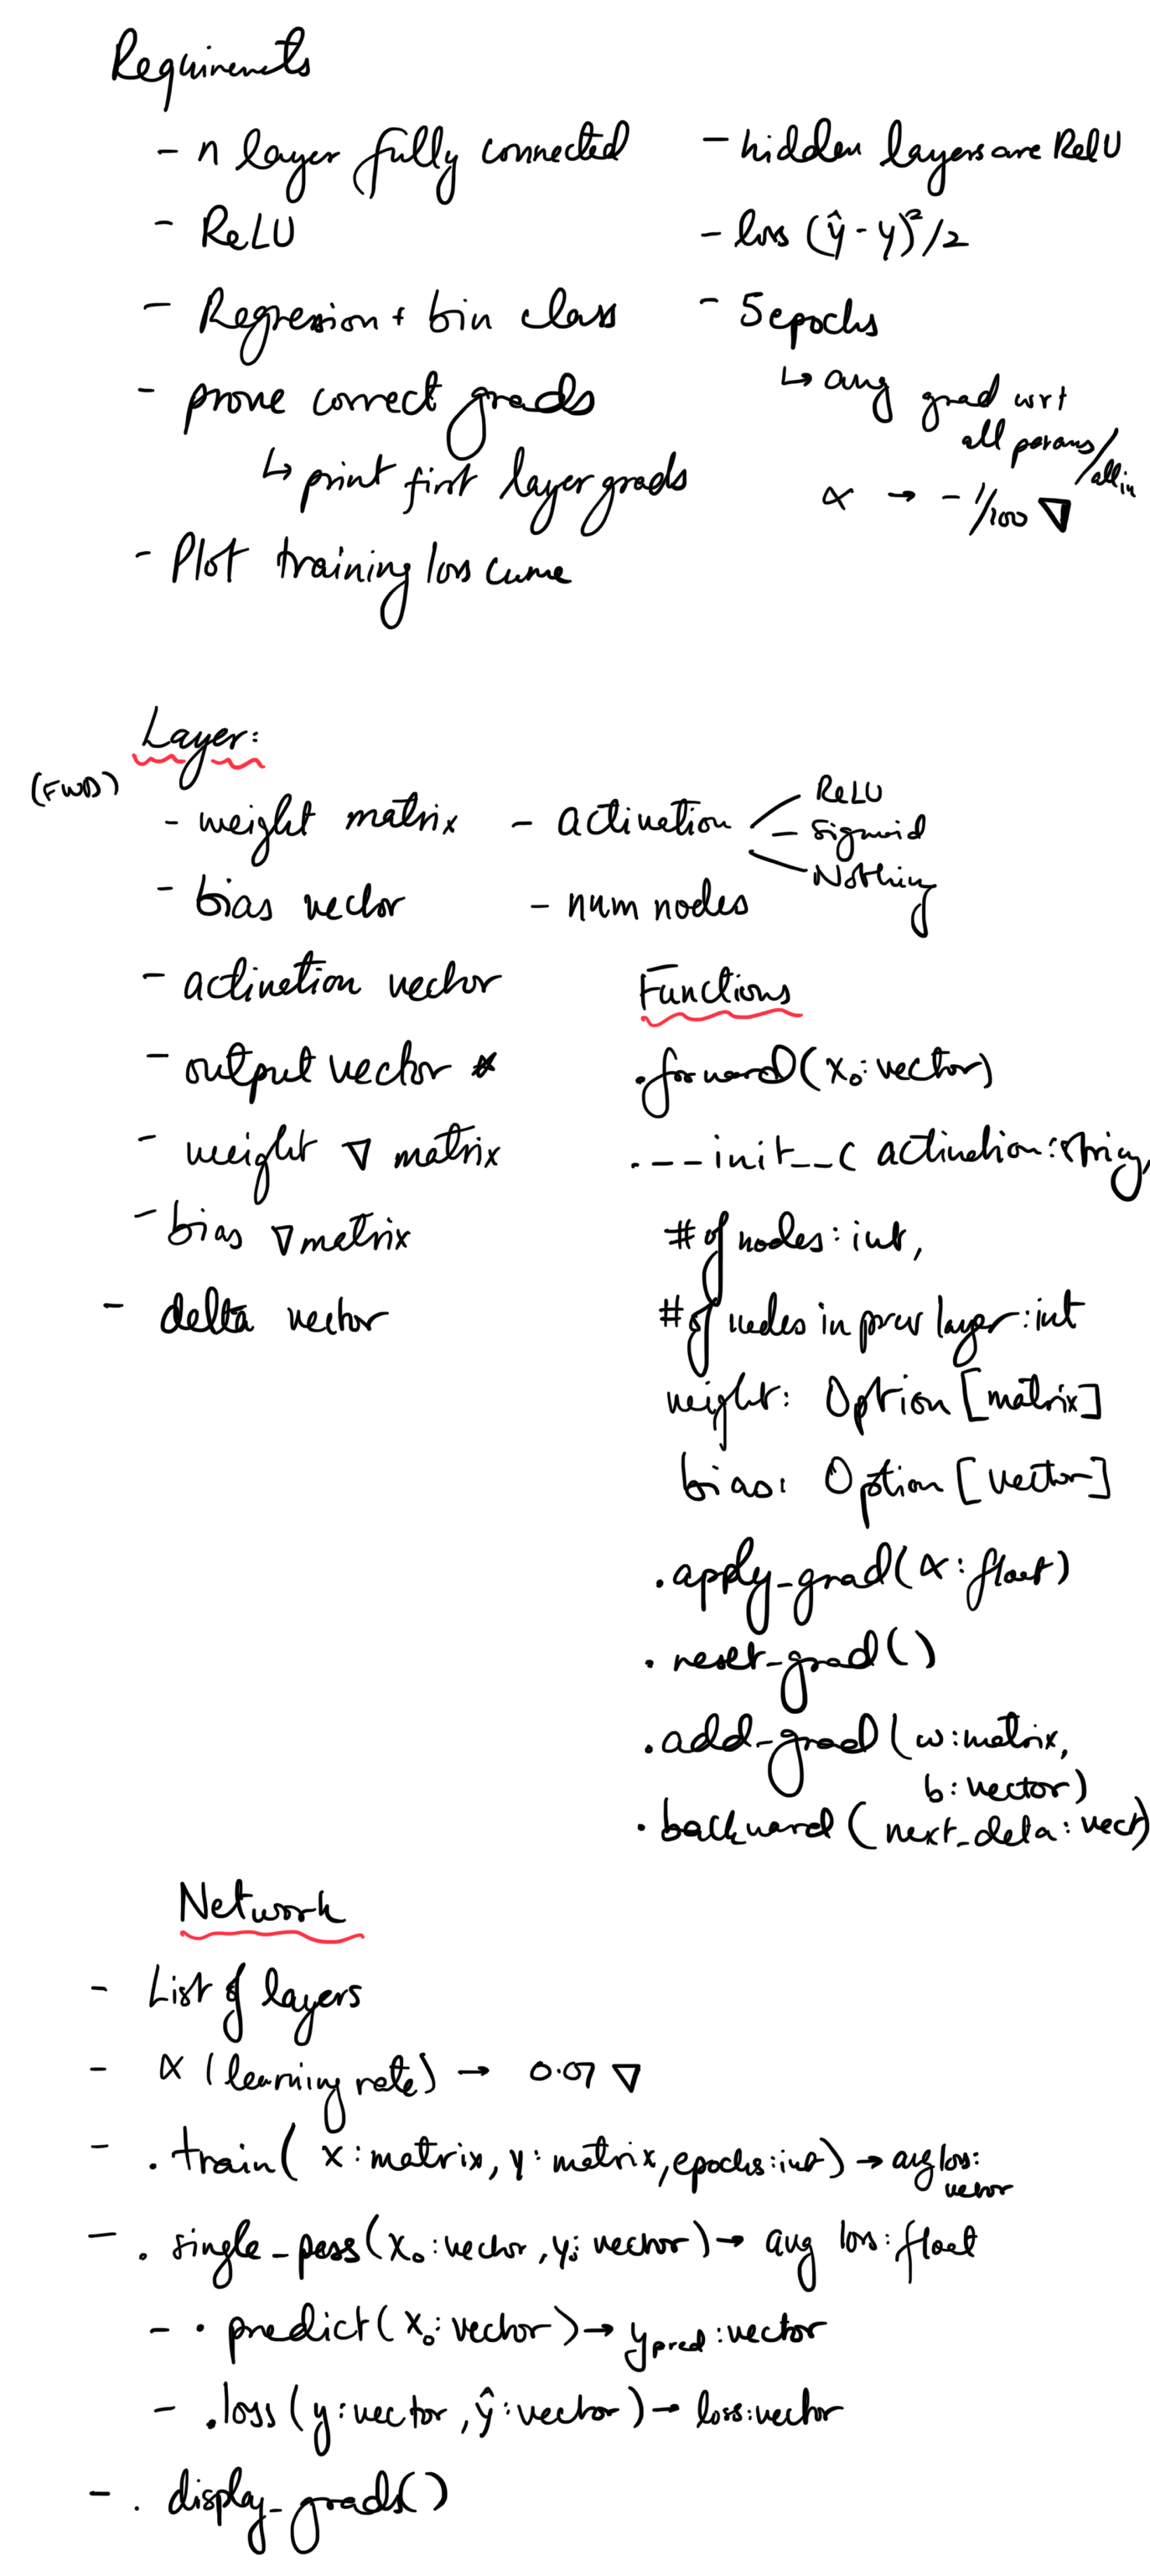 Requirements
- n layer fully connected
- ReLU
- Regression + bin class
- prove correct grads
↳ print first layer grads
- Plot training loss curve
- hidden layers are RelU
- loss (ŷ - y)²/2
- 5 epochs
↳ avg grad wrt
all params/
all in
α → - 1/100 ∇
Layer:
(FWD)
- weight matrix
- bias vector
- activation vector
- output vector
- weight ∇ matrix
- bias ∇ matrix
- delta vector
- activation
ReLU
- Sigmoid
Nothing
- num nodes
Functions
. forward(x₀: vector)
. __init__( activation: string,
# of nodes: int,
# of nodes in prev layer: int
weight: Option [matrix]
bias: Option [vector]
. apply_grad(α: float)
. reset_grad()
. add_grad(w: matrix,
b: vector)
. backward(next_delta: vect)
Network
- List of layers
- α (learning rate) → 0.01 ∇
- . train( x: matrix, y: matrix, epochs: int) → avg loss:
vector
- . single_pass(x₀: vector, y: vector) → avg loss: float
- . predict(x₀: vector) → y pred: vector
- . loss (y: vector, ŷ: vector) → loss: vector
- . display_grads()